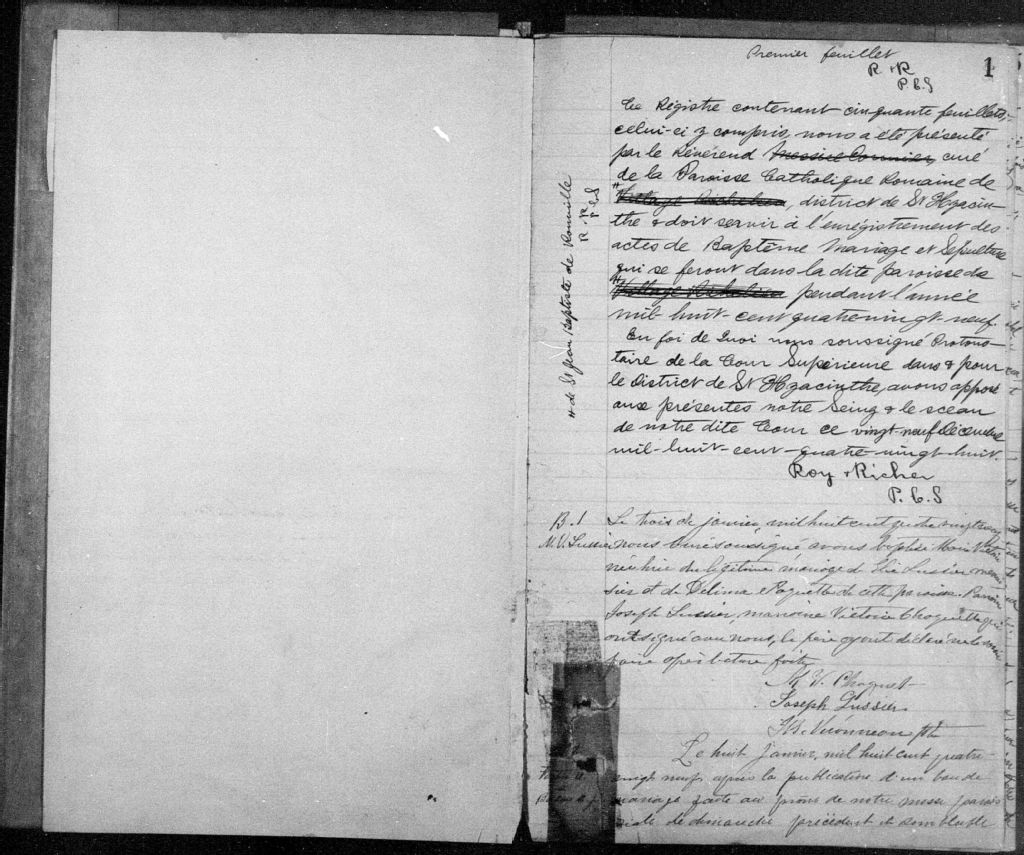 Premier feuillet
R & R
P. C. S
1
Ce Régistre contenant cinquante feuillets,
celui-ci y compris, nous a été présenté
par le Révérend Messire, curé
de la Paroisse Catholique Romaine de
# Village Richelieu, district de St Hyacin-
the & doit servir à l'enrégistrement des
actes de Baptême Mariage et Sepulture
qui se feront dans la dite paroisse de
# Village Richelieu pendant l'année
mil-huit-cent quatre-vingt-neuf.
En foi de Quoi nous soussigné Protono-
taire de la Cour Supérieure dans & pour
le District de St Hyacinthe, avons apposé
aux présentes notre Seing & le sceau
de notre dite Cour ce vingt-neuf Décembre
mil-huit-cent-quatre-vingt-huit.
Roy & Richer
P. C. S
# de St Jean Baptiste de Rouville
R & R
P. C. S
B. 1
M. V. Lussier
Le trois de janvier, mil huit cent quatre vingt neuf
nous curé soussigné avons baptisé Marie Victoire
née hier du légitime mariage d'Elie Lussier menui-
sier et de Délima Paquette de cette paroisse. Parrain
Joseph Lussier, marraine Victoire Choquette qui
ont signé avec nous, le père ayant déclaré ne le savoir
faire après lecture faite
M. V. Choquet
Joseph Lussier
Véronneau Ptre
Le huit Janvier, mil huit cent quatre-
vingt neuf après la publication d'un ban de
mariage faite au prône de notre messe parois-
siale de dimanche précédent et semblable